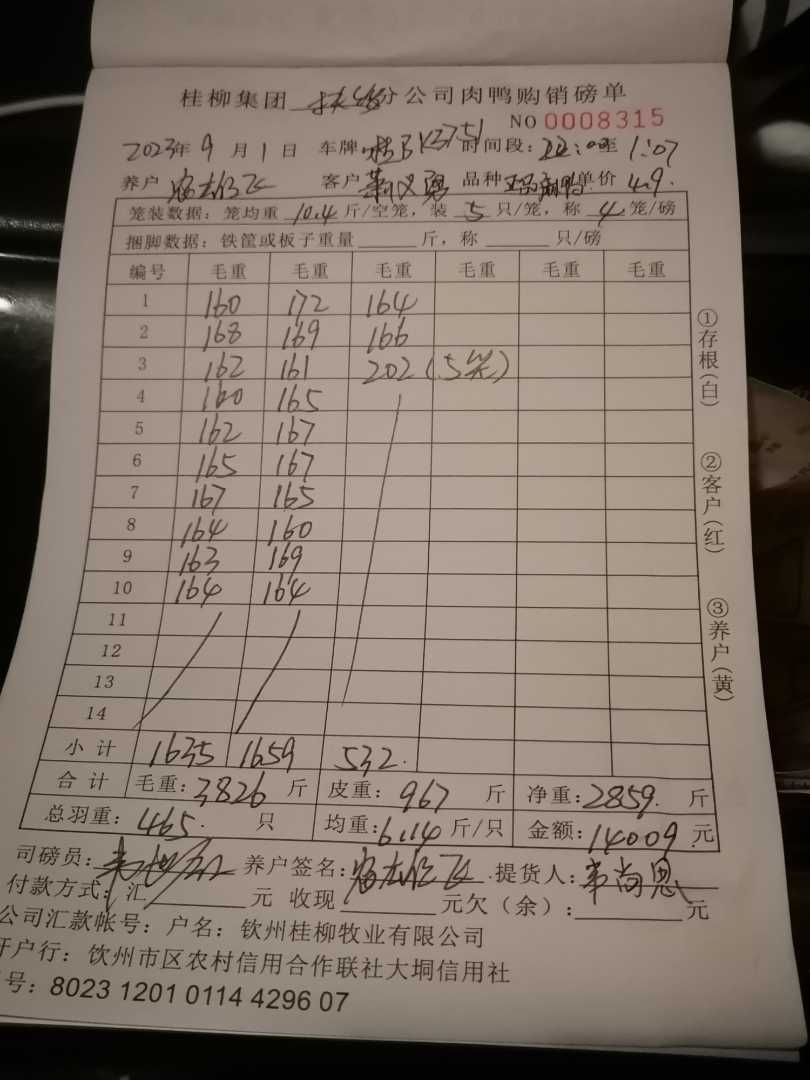 桂柳集团 扶绥分公司肉鸭购销磅单
NO 0008315
2023年 9 月 1 日 车牌 K3751 时间段: 22:00至 1:07
养户 客户 品种 单价 4.9.
笼装数据: 笼均重 10.4 斤/空笼, 装 5 只/笼, 称 4 笼/磅
捆脚数据: 铁筐或板子重量 斤, 称 只/磅
编号 毛重 毛重 毛重 毛重 毛重 毛重
1 160 172 164
2 168 169 166
3 162 161 202 (5笼)
4 160 165
5 162 167
6 165 167
7 167 165
8 164 160
9 163 169
10 164 164
11
12
13
14
小 计 1635 1659 532.
合 计 毛重: 3826 斤 皮重: 967 斤 净重: 2859. 斤
总羽重: 465. 只 均重: 6.14 斤/只 金额: 14009 元
司磅员: 养户签名: 提货人: 韦尚恩
付款方式: 汇 元 收现 元欠(余): 元
公司汇款帐号: 户名: 钦州桂柳牧业有限公司
开户行: 饮州市区农村信用合作联社大垌信用社
号: 8023 1201 0114 4296 07
①存根(白)
②客户(红)
③养户(黄)